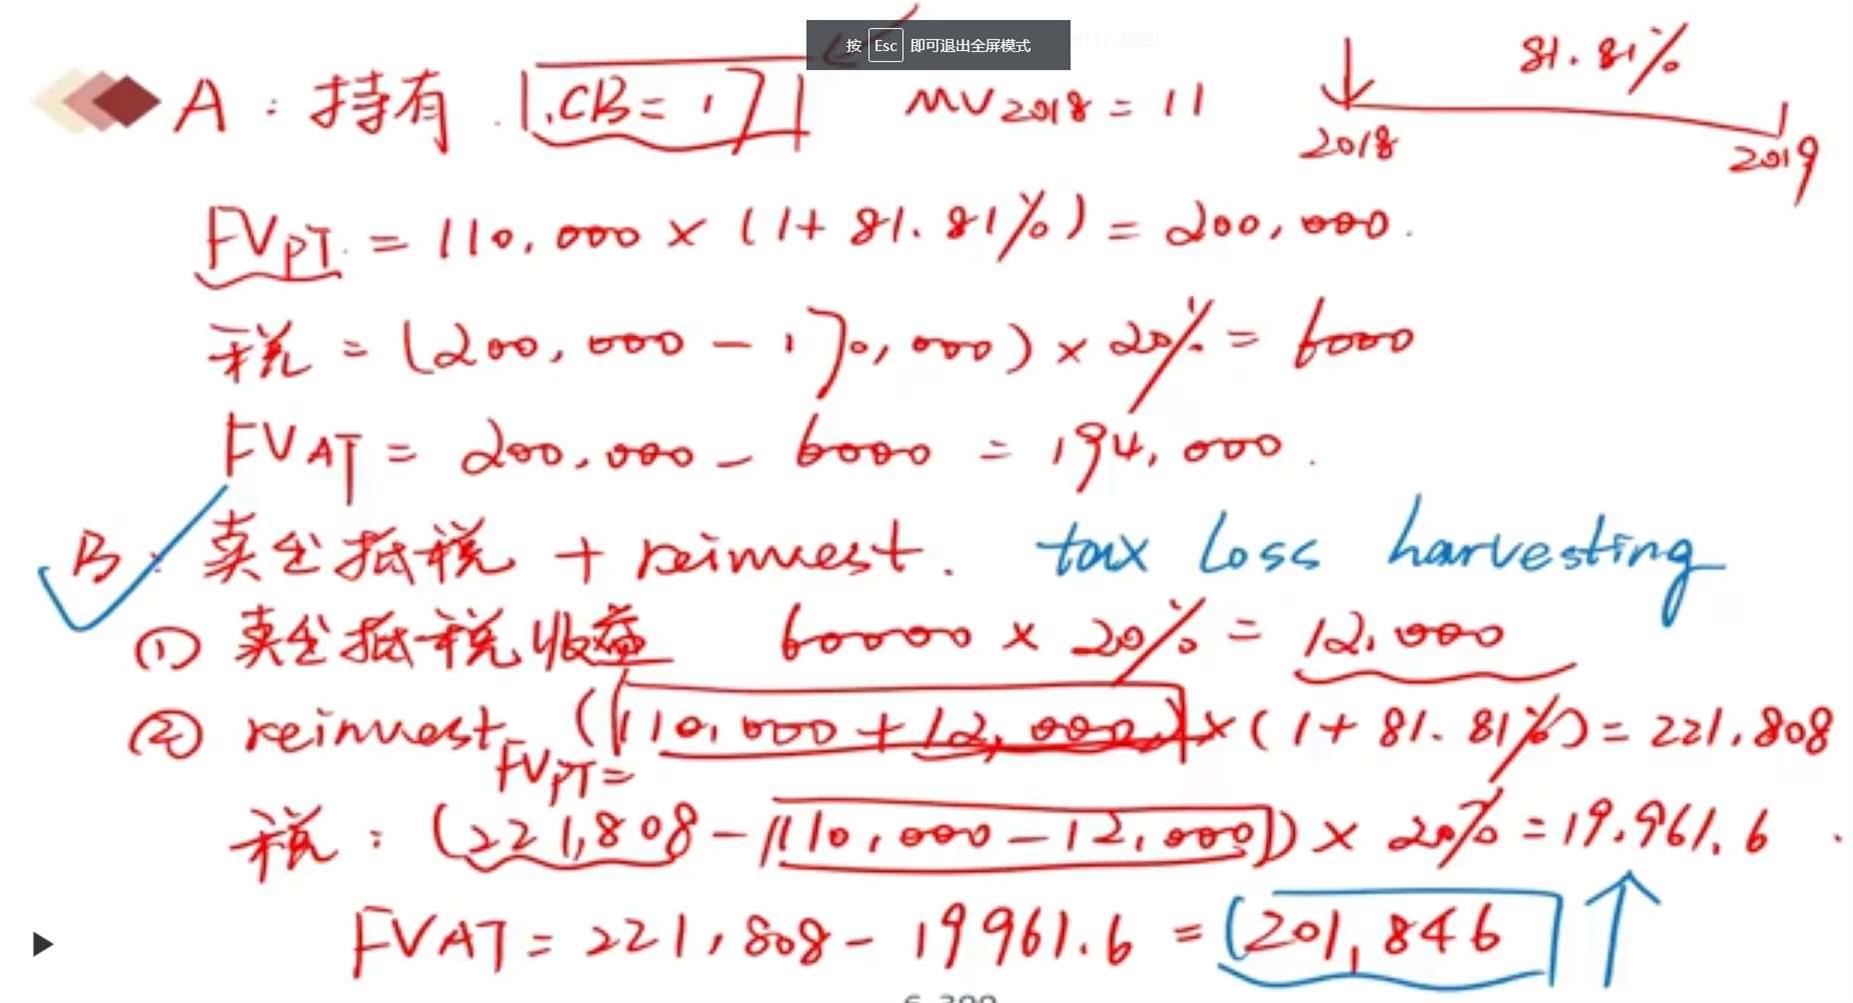 按 Esc 即可退出全屏模式
A : 持有 . CB = 17 MV2018 = 11
81.81%
2018 2019
FVPT = 110,000 × (1+ 81.81%) = 200,000.
税 = (200,000 - 170,000) × 20% = 6000
FVAT = 200,000 - 6000 = 194,000.
B : 卖出抵税 + reinvest. tax Loss harvesting
① 卖出抵税收益 60000 × 20% = 12,000
② reinvest (110,000 + 12,000) × (1+ 81.81%) = 221,808
FVPT =
税 : (221,808 - (110,000 - 12,000)) × 20% = 19,961.6
FVAT = 221,808 - 19961.6 = 201,846